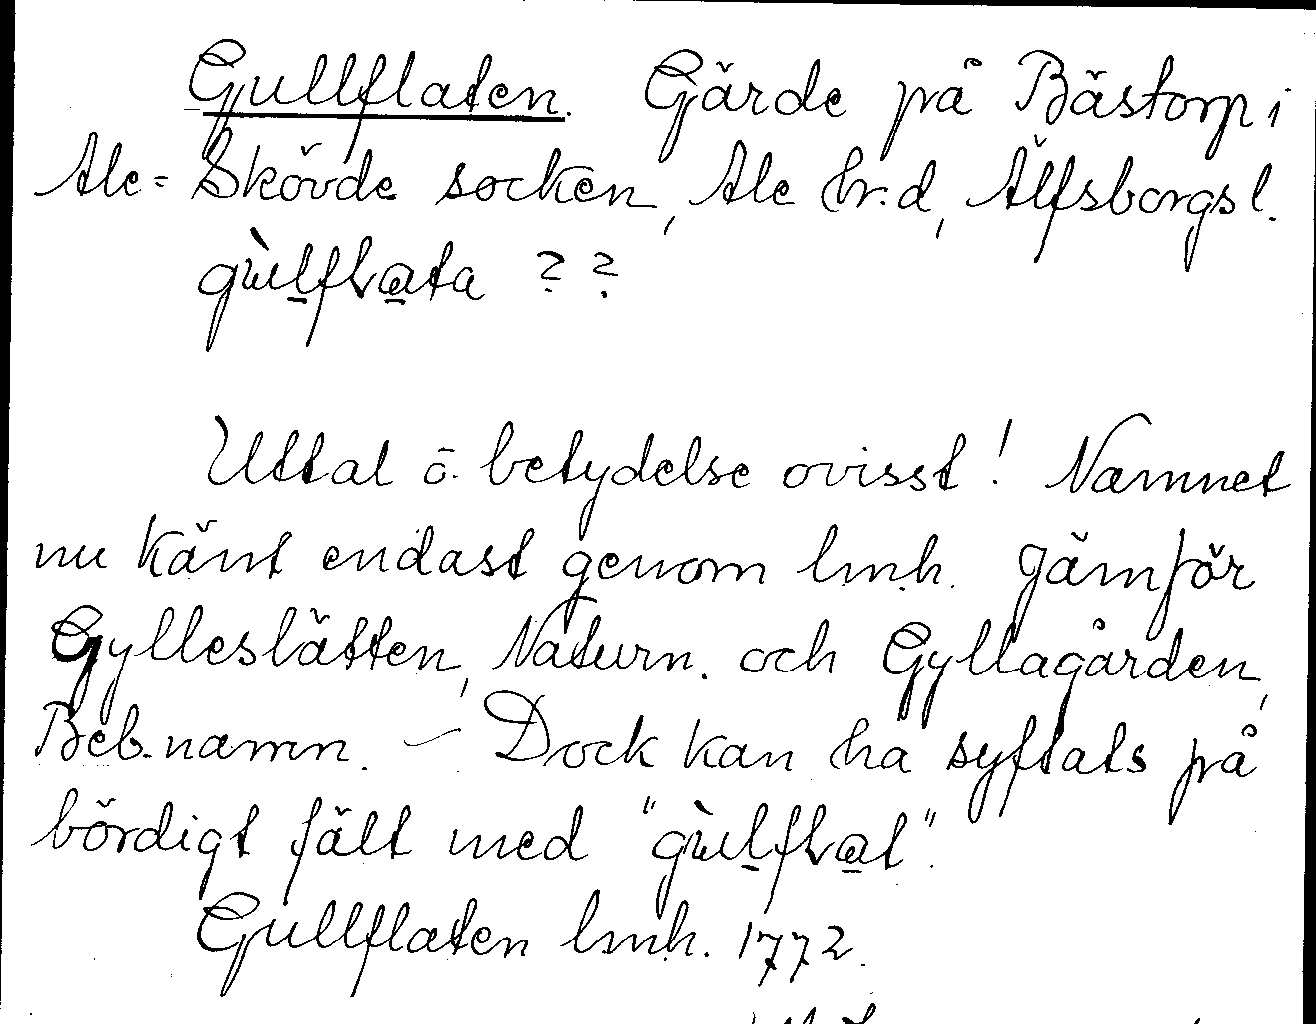 Gullflaten. Gärde på Bästorp i
Ale-Skövde socken, Ale hr.d, Älfsborgs l.
gùl̲fla̲ta ? ?
Uttal o. betydelse ovisst! Namnet
nu känt endast genom lmh. Jämför
Gylleslätten, Naturn. och Gyllagården,
Beb.namn. – Dock kan ha syftats på
bördigt fält med "gùl̲fla̲t".
Gullflaten lmh. 1772.